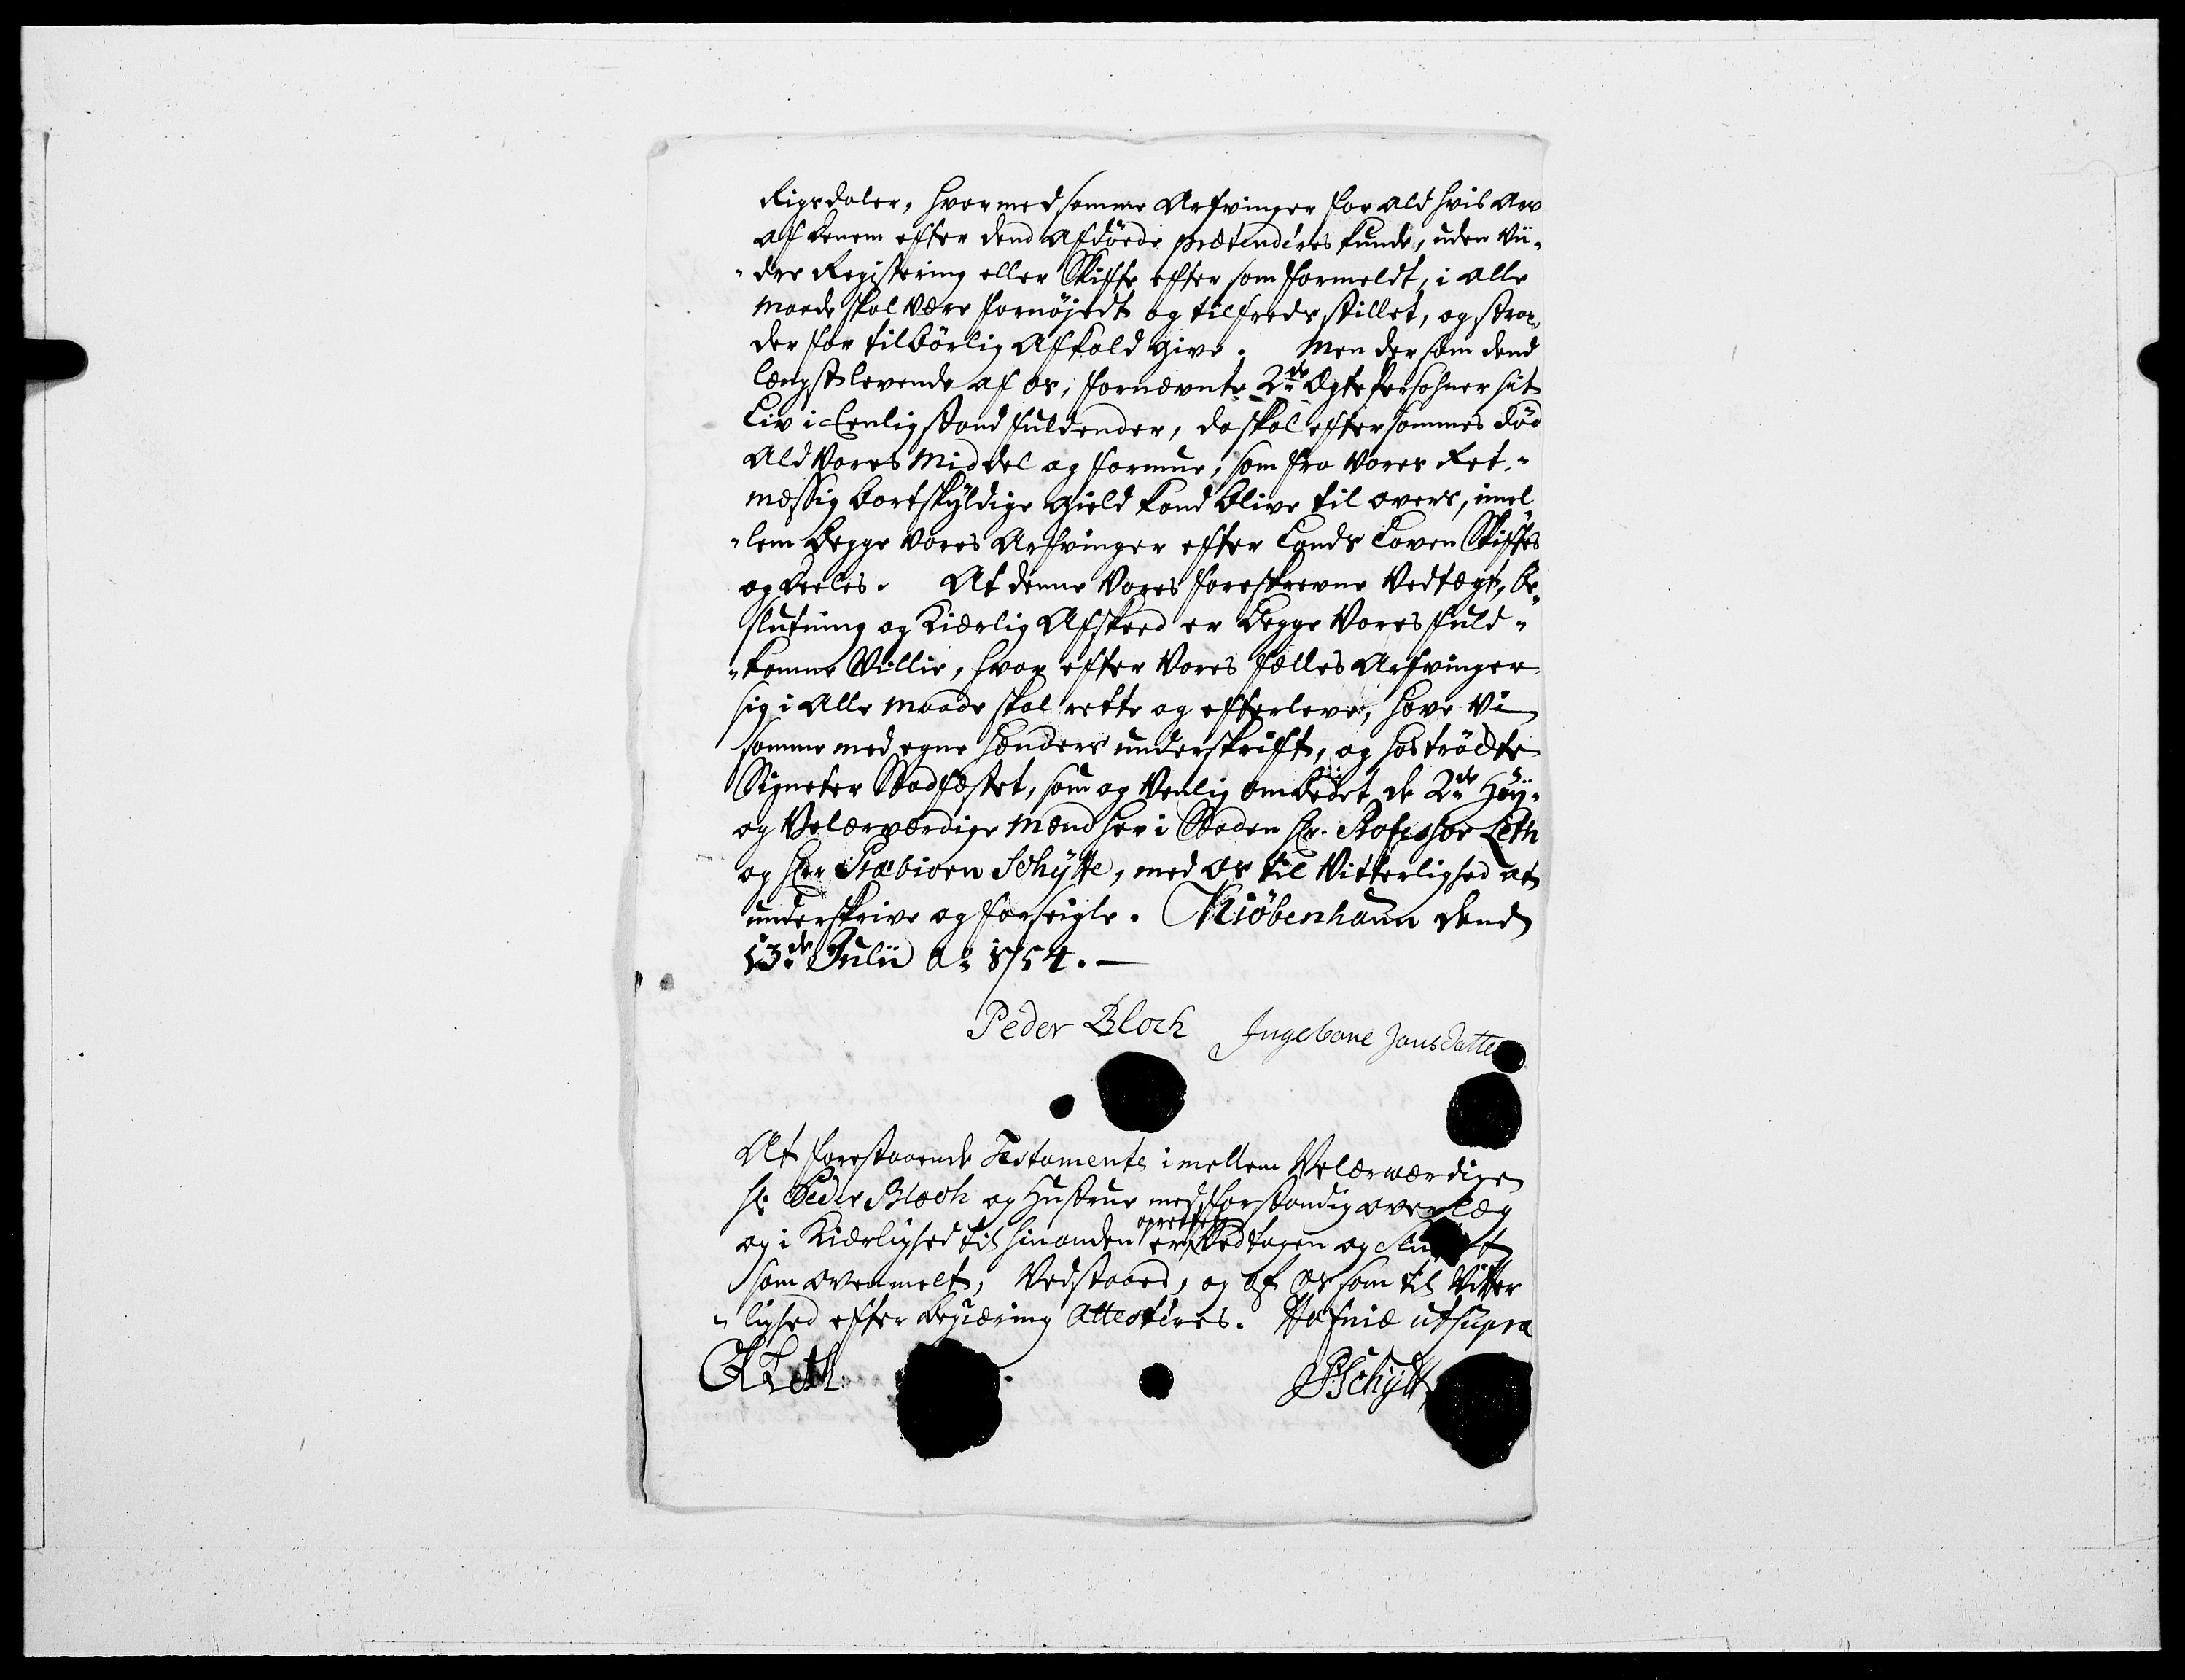 Rigsdaler, hvormed samme Arfvinger for ald hvis Arv
af denem efter dend Afdöede prætendéres kunde, uden vii-
"dre Registering eller Skiffte efter som formeldt, i alle
maade skal være fornöjedt og tilfredsstillet, og strax
derfor tilbörlig Afkald give. Men dersom dend
længstlevende af os, fornævnte 2de Ægte Persohner sit
Liv i Eenligstand fuldender, da skal efter sammes död
Ald Vores Middel og formue, som fra Vores Ret-
mæssig bortskyldige gield kand blive til overs, imel
"lem Begge Vores Arfvinger efter Lands Loven Skifftes
og deeles. At denne Vores foreskrevne Vedtægt, be-
slutning og Kiærlig Afskeed er Begge Vores fuld-
"komne Villie, hvor efter Vores fælles Arfvinger
sig i Alle maade skal rette og efterleve, have Vi
samme med egne hænders underskrifft, og hoströgte
Signeter Stadfæstet, som og Venlig ombedet de 2de Höy-
og Velærværdige Mænd her i Staden Hr. Professor Leth
og Herr Præbiorn Schytte, med os til Vitterlighed at
underskrive og forseigle. Kiöbenhaun dend
13de Julii Ao 1754.
Peder Bloch Ingebore Jansdatter
At forestaaende Testamente imellem Velærværdige
Hr Peder Bloch og Hustrue med forstandig overlæg
og i Kiærlighed til hinanden oprettet er, Vedtagen og
som ovenmelt, Vedstaaed, og af os som til Vitter
"lighed efter begiæring Attesteres. Hafniæ ut supra
Leth. PSchytte